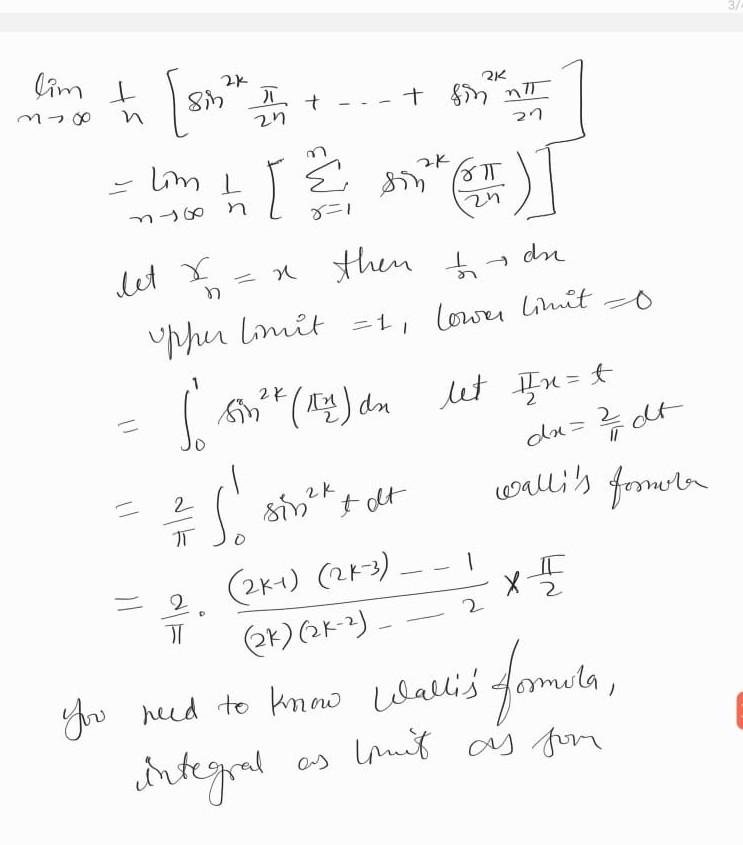 3/
lim n→∞ 1/n [ sin^2k π/2n + - - - + sin^2k nπ/2n ]
= lim n→∞ 1/n [ Σ r=1 n sin^2k (rπ/2n) ]
let r/n = x then 1/n → dx
upper limit = 1, lower limit = 0
= ∫₀¹ sin^2k (πx/2) dx let π/2 x = t
dx = 2/π dt
= 2/π ∫₀¹ sin^2k t dt walli's formula
= 2/π . (2k-1) (2k-3) - - 1 / (2k) (2k-2) - - 2 × π/2
you need to know Walli's formula,
integral as limit as sum